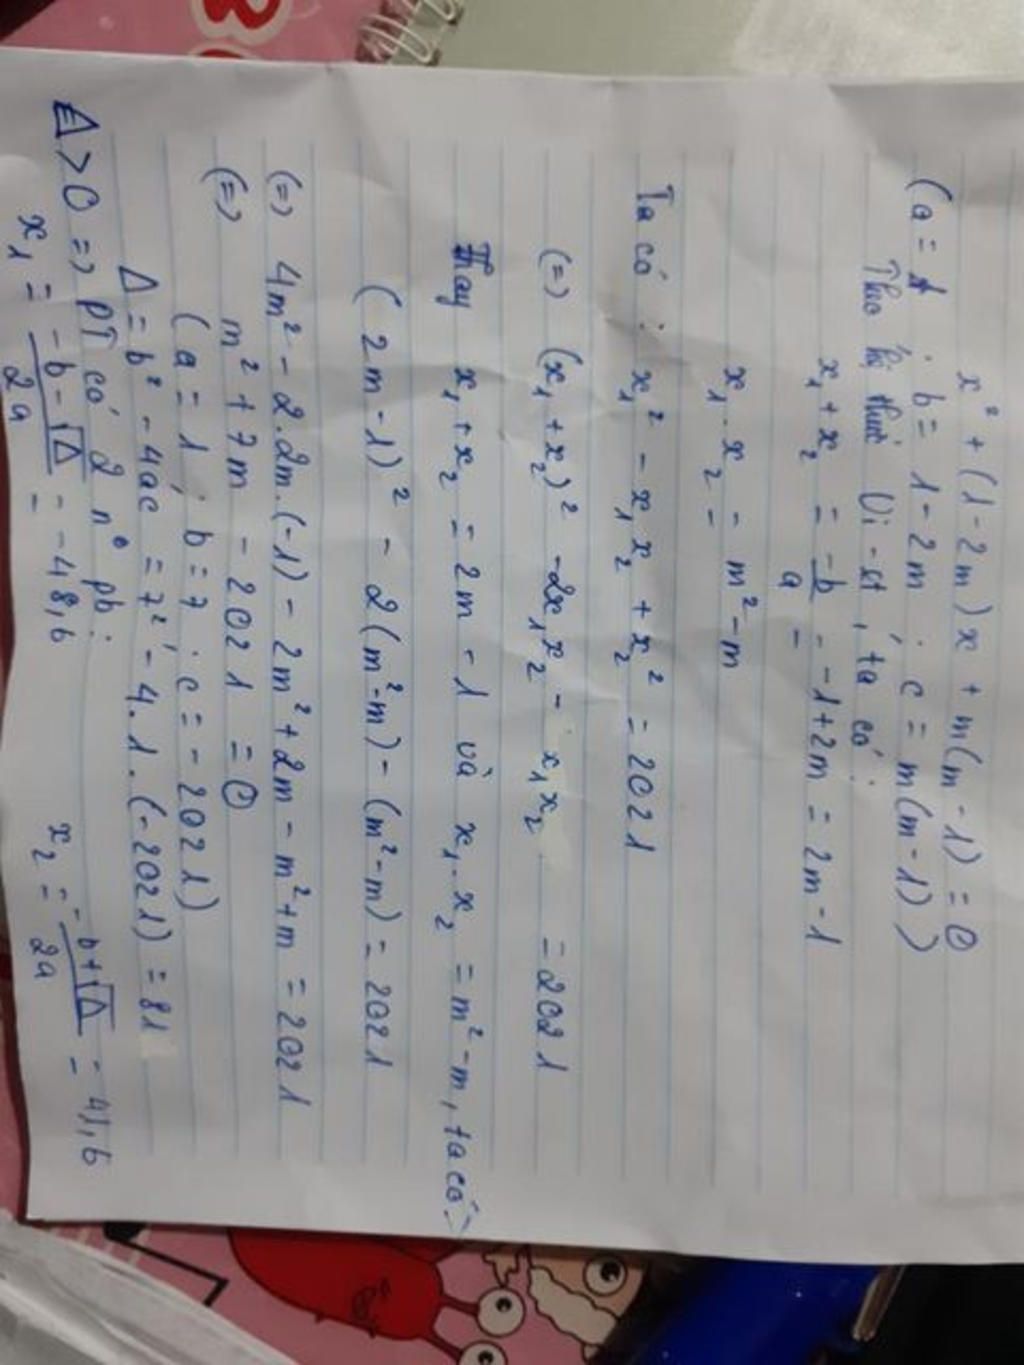 x² + (1-2m)x + m(m-1) = 0
(a = 1 ; b = 1-2m ; c = m(m-1))
Theo hệ thức Vi-ét, ta có:
x₁ + x₂ = -b/a = -1+2m = 2m-1
x₁.x₂ = m²-m
Ta có : x₁² - x₁x₂ + x₂² = 2021
(=) (x₁ + x₂)² -2x₁x₂ - x₁x₂ = 2021
Thay x₁+x₂ = 2m-1 và x₁.x₂ = m²-m, ta có:
(2m-1)² - 2(m²-m) - (m²-m) = 2021
(=) 4m² - 2.2m.(-1) - 2m²+2m - m²+m = 2021
(=) m² + 7m - 2021 = 0
(a = 1 ; b = 7 ; c = - 2021)
Δ = b² - 4ac = 7² - 4.1.(-2021) = 81
Δ > 0 => PT có 2 n° pb:
x₁ = -b-√Δ/2a = -48,6 x₂ = -b+√Δ/2a = 41,6